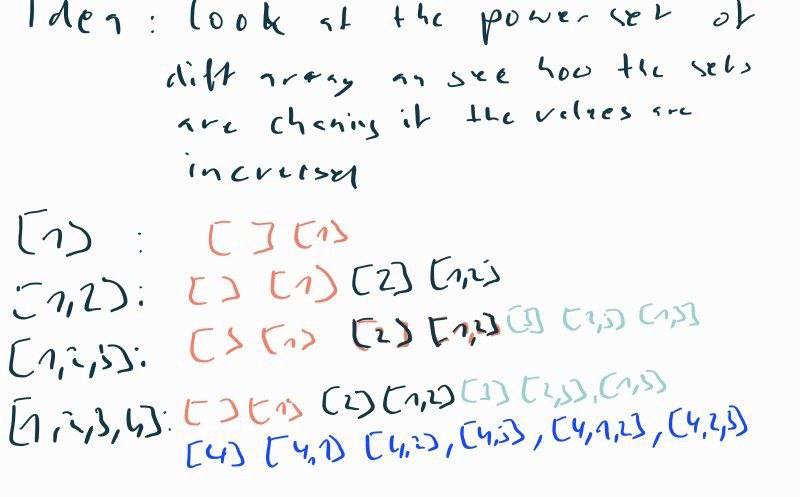 Idea : look at the power set of
diff array an see how the sets
are chaning if the values are
increased
[1] : [ ] [1]
[1,2]: [ ] [1] [2] [1,2]
[1,2,3]: [ ] [1] [2] [1,2] [3] [2,3] [1,3]
[1,2,3,4]: [ ] [1] [2] [1,2] [3] [2,3], [1,3]
[4] [4,1] [4,2], [4,3], [4,1,2], [4,2,3]